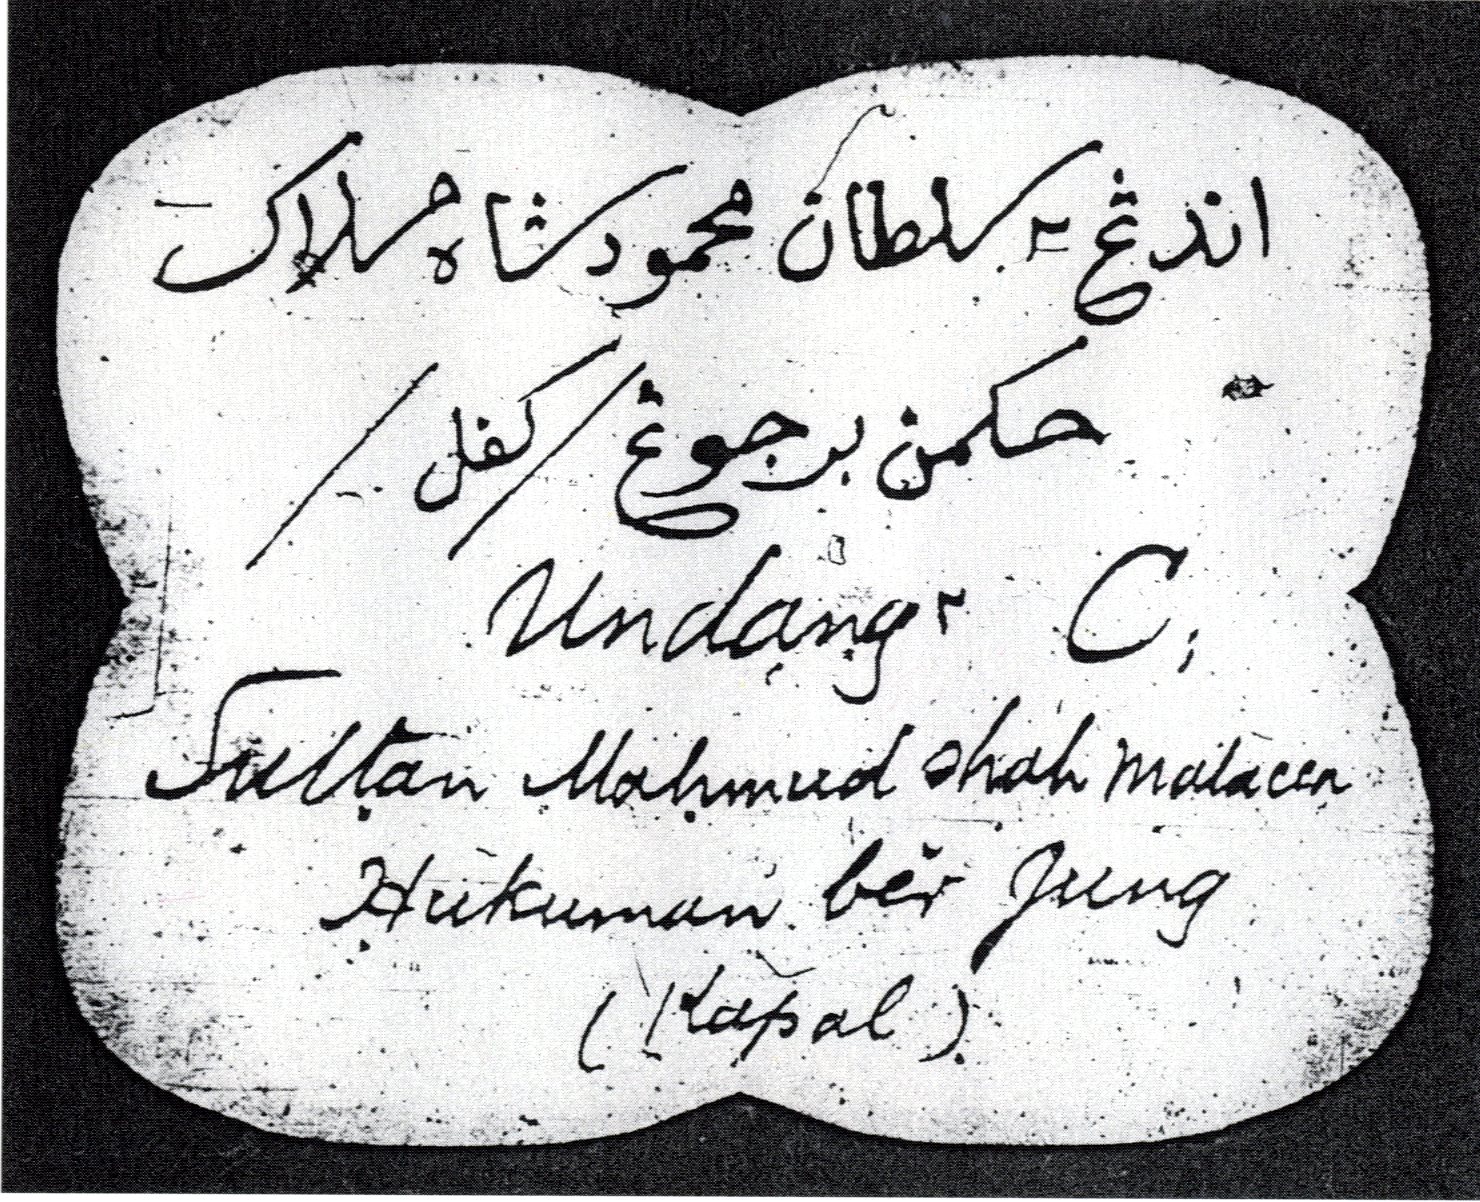 اندڠ٢ سلطان محمود شاه ملاک
حکمن برجوڠ / کفل /
Undang٢ C,
Sultan Mahmud Shah Malacca
Hukuman ber Jung
(Kapal)